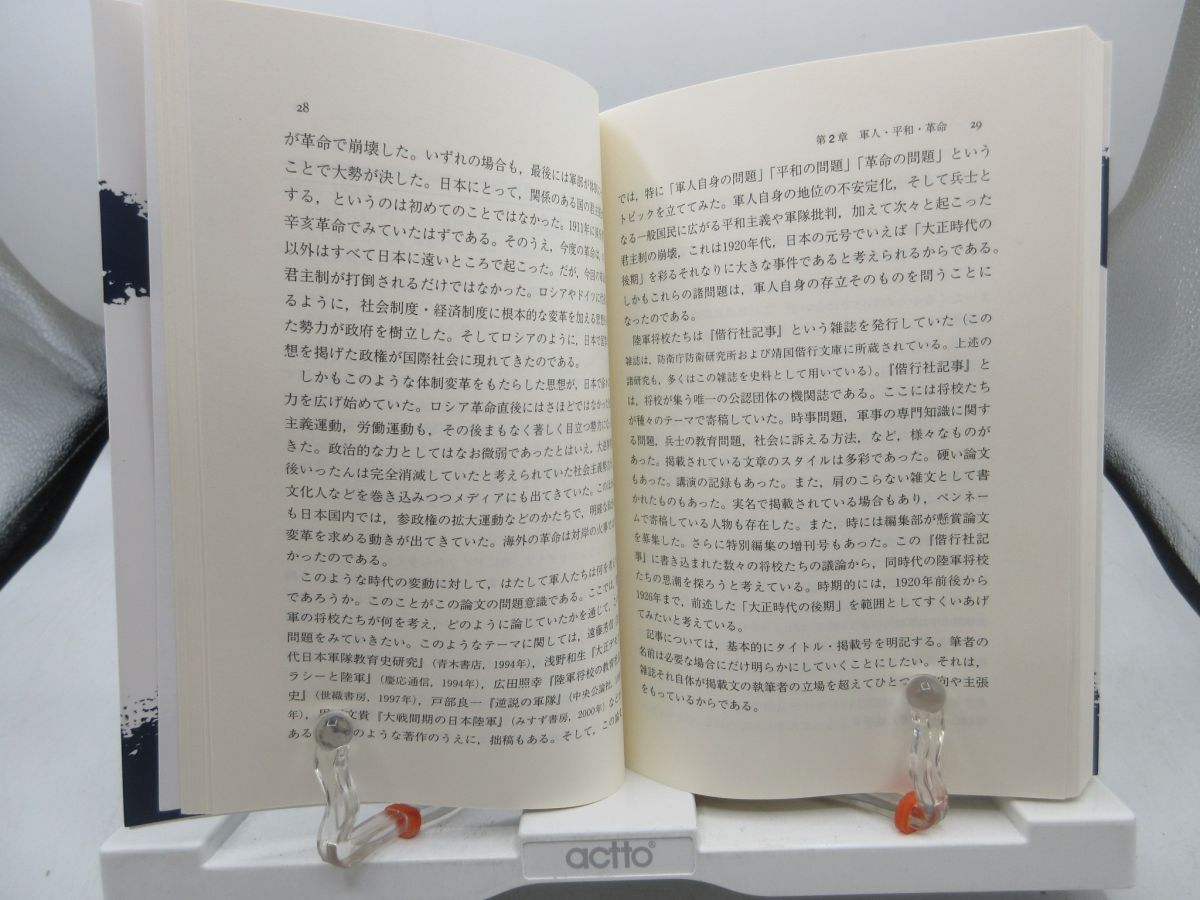 28
が革命で崩壊した。いずれの場合も，最後には軍部が
ことで大勢が決した。日本にとって，関係のある国の君主
する，というのは初めてのことではなかった。1911年に
辛亥革命でみていたはずである。そのうえ，今度の革命は
以外はすべて日本に遠いところで起こった。だが，今回の
君主制が打倒されるだけではなかった。ロシアやドイツに
るように，社会制度・経済制度に根本的な変革を加える思想
た勢力が政府を樹立した。そしてロシアのように，日本で
想を掲げた政権が国際社会に現れてきたのである。
しかもこのような体制変革をもたらした思想が，日本で
力を広げ始めていた。ロシア革命直後にはさほどではなかった
主義運動，労働運動も，その後まもなく著しく目立つ勢力に
きた。政治的な力としてはなお微弱であったとはいえ，大逆
後いったんは完全消滅していたと考えられていた社会主義勢
文化人などを巻き込みつつメディアにも出てきていた。この
も日本国内では，参政権の拡大運動などのかたちで，明確な
変革を求める動きが出てきていた。海外の革命は対岸の火事で
かったのである。
このような時代の変動に対して，はたして軍人たちは何を
であろうか。このことがこの論文の問題意識である。ここでは，
軍の将校たちが何を考え，どのように論じていたかを通じて，
問題をみていきたい。このようなテーマに関しては，遠藤芳信
代日本軍隊教育史研究』（青木書店，1994年），浅野和生『大正デモ
ラシーと陸軍』（慶応通信，1994年），広田照幸『陸軍将校の教育
史』（世織書房，1997年），戸部良一『逆説の軍隊』（中央公論社，
年），文貴『大戦間期の日本陸軍』（みすず書房，2000年）など
あるのような著作のうえに，拙稿もある。そして，この
第2章　軍人・平和・革命　29
では，特に「軍人自身の問題」「平和の問題」「革命の問題」という
トピックを立ててみた。軍人自身の地位の不安定化，そして兵士と
なる一般国民に広がる平和主義や軍隊批判，加えて次々と起こった
君主制の崩壊，これは1920年代，日本の元号でいえば「大正時代の
後期」を彩るそれなりに大きな事件であると考えられるからである。
しかもこれらの諸問題は，軍人自身の存立そのものを問うことに
なったのである。
陸軍将校たちは『偕行社記事』という雑誌を発行していた（この
雑誌は，防衛庁防衛研究所および靖国偕行文庫に所蔵されている。上述の
諸研究も，多くはこの雑誌を史料として用いている）。『偕行社記事』と
は，将校が集う唯一の公認団体の機関誌である。ここには将校たち
が種々のテーマで寄稿していた。時事問題，軍事の専門知識に関す
る問題，兵士の教育問題，社会に訴える方法，など，様々なものが
あった。掲載されている文章のスタイルは多彩であった。硬い論文
もあった。講演の記録もあった。また，肩のこらない雑文として書
かれたものもあった。実名で掲載されている場合もあり，ペンネー
ムで寄稿している人物も存在した。また，時には編集部が懸賞論文
を募集した。さらに特別編集の増刊号もあった。この『偕行社記
事』に書き込まれた数々の将校たちの議論から，同時代の陸軍将校
たちの思潮を探ろうと考えている。時期的には，1920年前後から
1926年まで，前述した「大正時代の後期」を範囲としてすくいあげ
てみたいと考えている。
記事については，基本的にタイトル・掲載号を明記する。筆者の
名前は必要な場合にだけ明らかにしていくことにしたい。それは，
雑誌それ自体が掲載文の執筆者の立場を超えてひとつ向や主張
をもっているからである。
actto